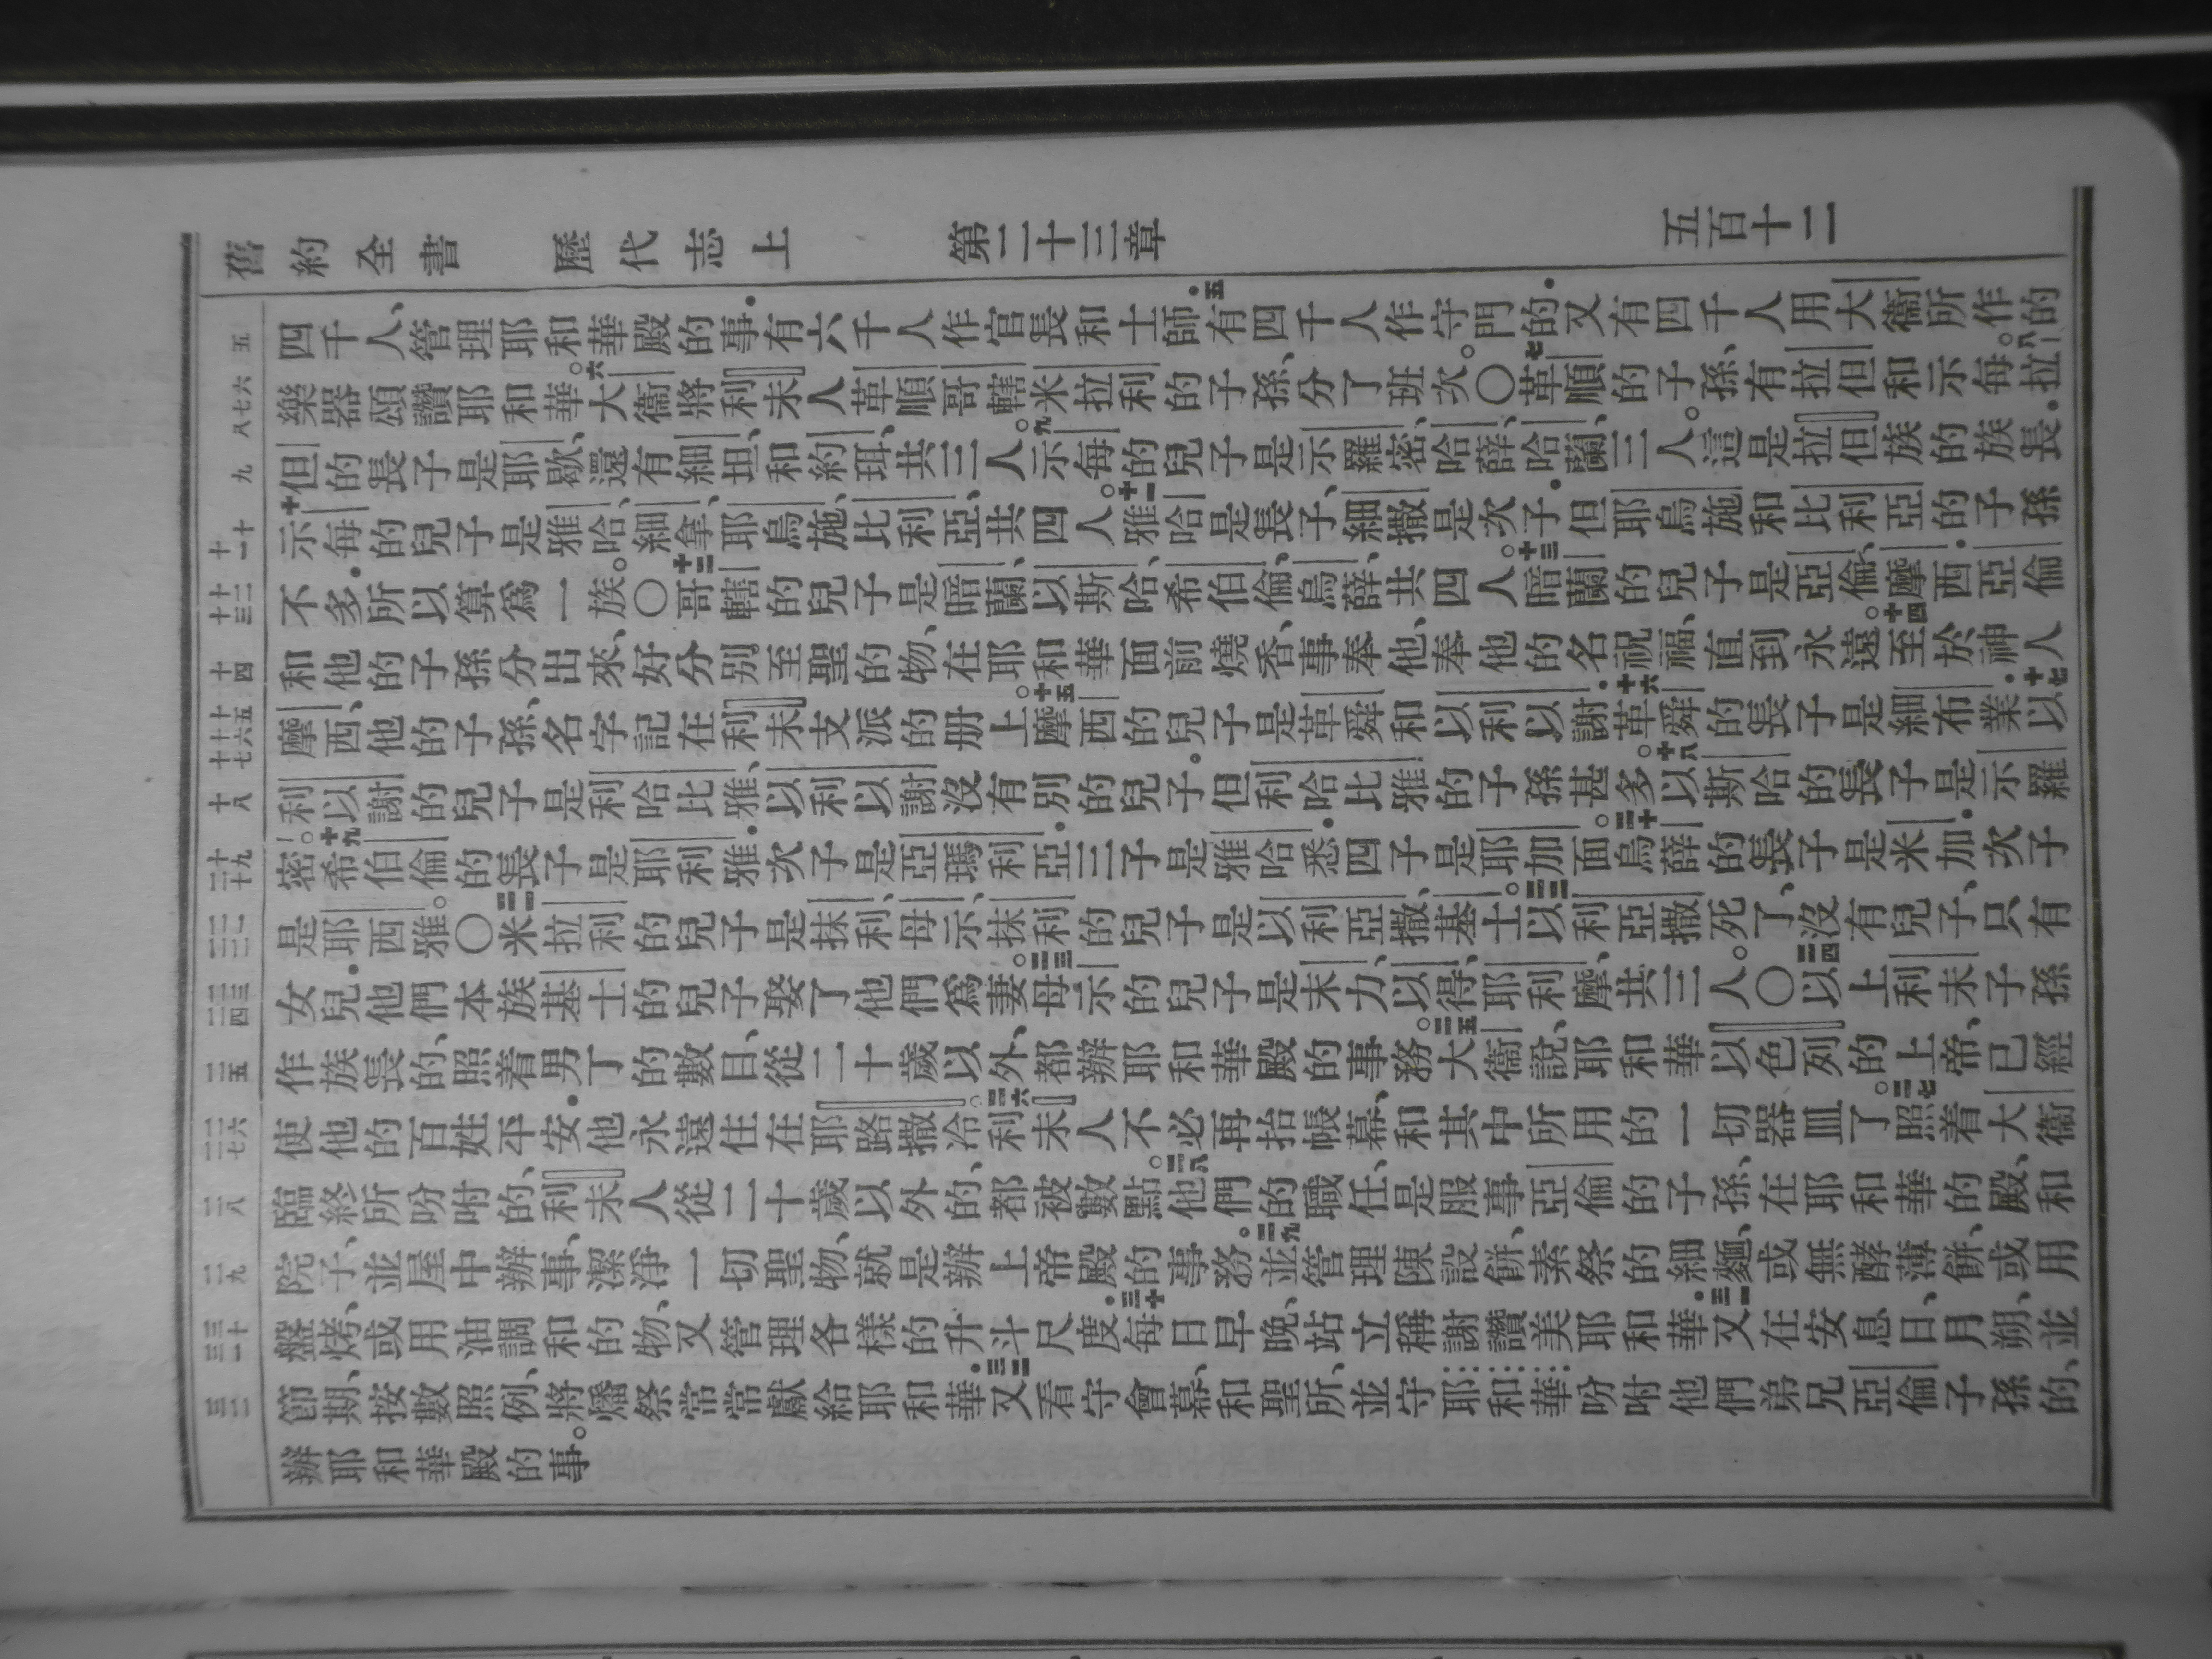 舊約全書 歷代志上 第二十三章 五百十二
五
六 七 八
九
十 十一
十二 十三
十四
十五 十六 十七
十八
十九 二十
二一 二二
二三 二四
二五
二六 二七
二八
二九
三十 三一
三二
四千人、管理耶和華殿的事．有六千人作官長和士師．五有四千人作守門的．又有四千人用大衞所作的
樂器頌讚耶和華。六大衞將利未人革順哥轄米拉利的子孫、分了班次。〇七革順的子孫、有拉但和示每。八拉
但的長子是耶歇、還有細坦、和約珥、共三人。九示每的兒子是示羅密、哈薛、哈蘭、三人。這是拉但族的族長．
十示每的兒子是雅哈、細拿、耶烏施、比利亞、共四人。十一雅哈是長子、細撒是次子．但耶烏施和比利亞的子孫
不多．所以算爲一族。〇十二哥轄的兒子是暗蘭、以斯哈、希伯倫、烏薛、共四人。十三暗蘭的兒子是亞倫、摩西．亞倫
和他的子孫分出來、好分別至聖的物、在耶和華面前燒香、事奉他、奉他的名祝福、直到永遠。十四至於神人
摩西、他的子孫、名字記在利未支派的册上。十五摩西的兒子是革舜和以利以謝．十六革舜的長子是細布業．十七以
利以謝的兒子是利哈比雅、以利以謝沒有別的兒子．但利哈比雅的子孫甚多。十八以斯哈的長子是示羅
密。十九希伯倫的長子是耶利雅．次子是亞瑪利亞．三子是雅哈悉．四子是耶加面。二十烏薛的長子是米加．次子
是耶西雅。〇二一米拉利的兒子是抹利、母示、抹利的兒子是以利亞撒、基士。二二以利亞撒死了、沒有兒子、只有
女兒．他們本族基士的兒子娶了他們爲妻。二三母示的兒子是末力、以得、耶利摩、共三人。〇二四以上利未子孫
作族長的、照着男丁的數目、從二十歲以外、都辦耶和華殿的事務。二五大衞說、耶和華以色列的上帝、已經
使他的百姓平安．他永遠住在耶路撒冷。二六利未人不必再抬帳幕、和其中所用的一切器皿了。二七照着大衞
臨終所吩咐的、利未人從二十歲以外的、都被數點。二八他們的職任、是服事亞倫的子孫、在耶和華的殿、和
院子、並屋中辦事、潔淨一切聖物、就是辦上帝殿的事務。二九並管理陳設餅、素祭的細麵、或無酵薄餅、或用
盤烤、或用油調和的物、又管理各樣的升斗尺度．三十每日早晚、站立稱謝讚美耶和華．三一又在安息日、月朔、並
節期、按數照例、將燔祭常常獻給耶和華．三二又看守會幕、和聖所、並守耶和華吩咐他們弟兄亞倫子孫的、
辦耶和華殿的事。